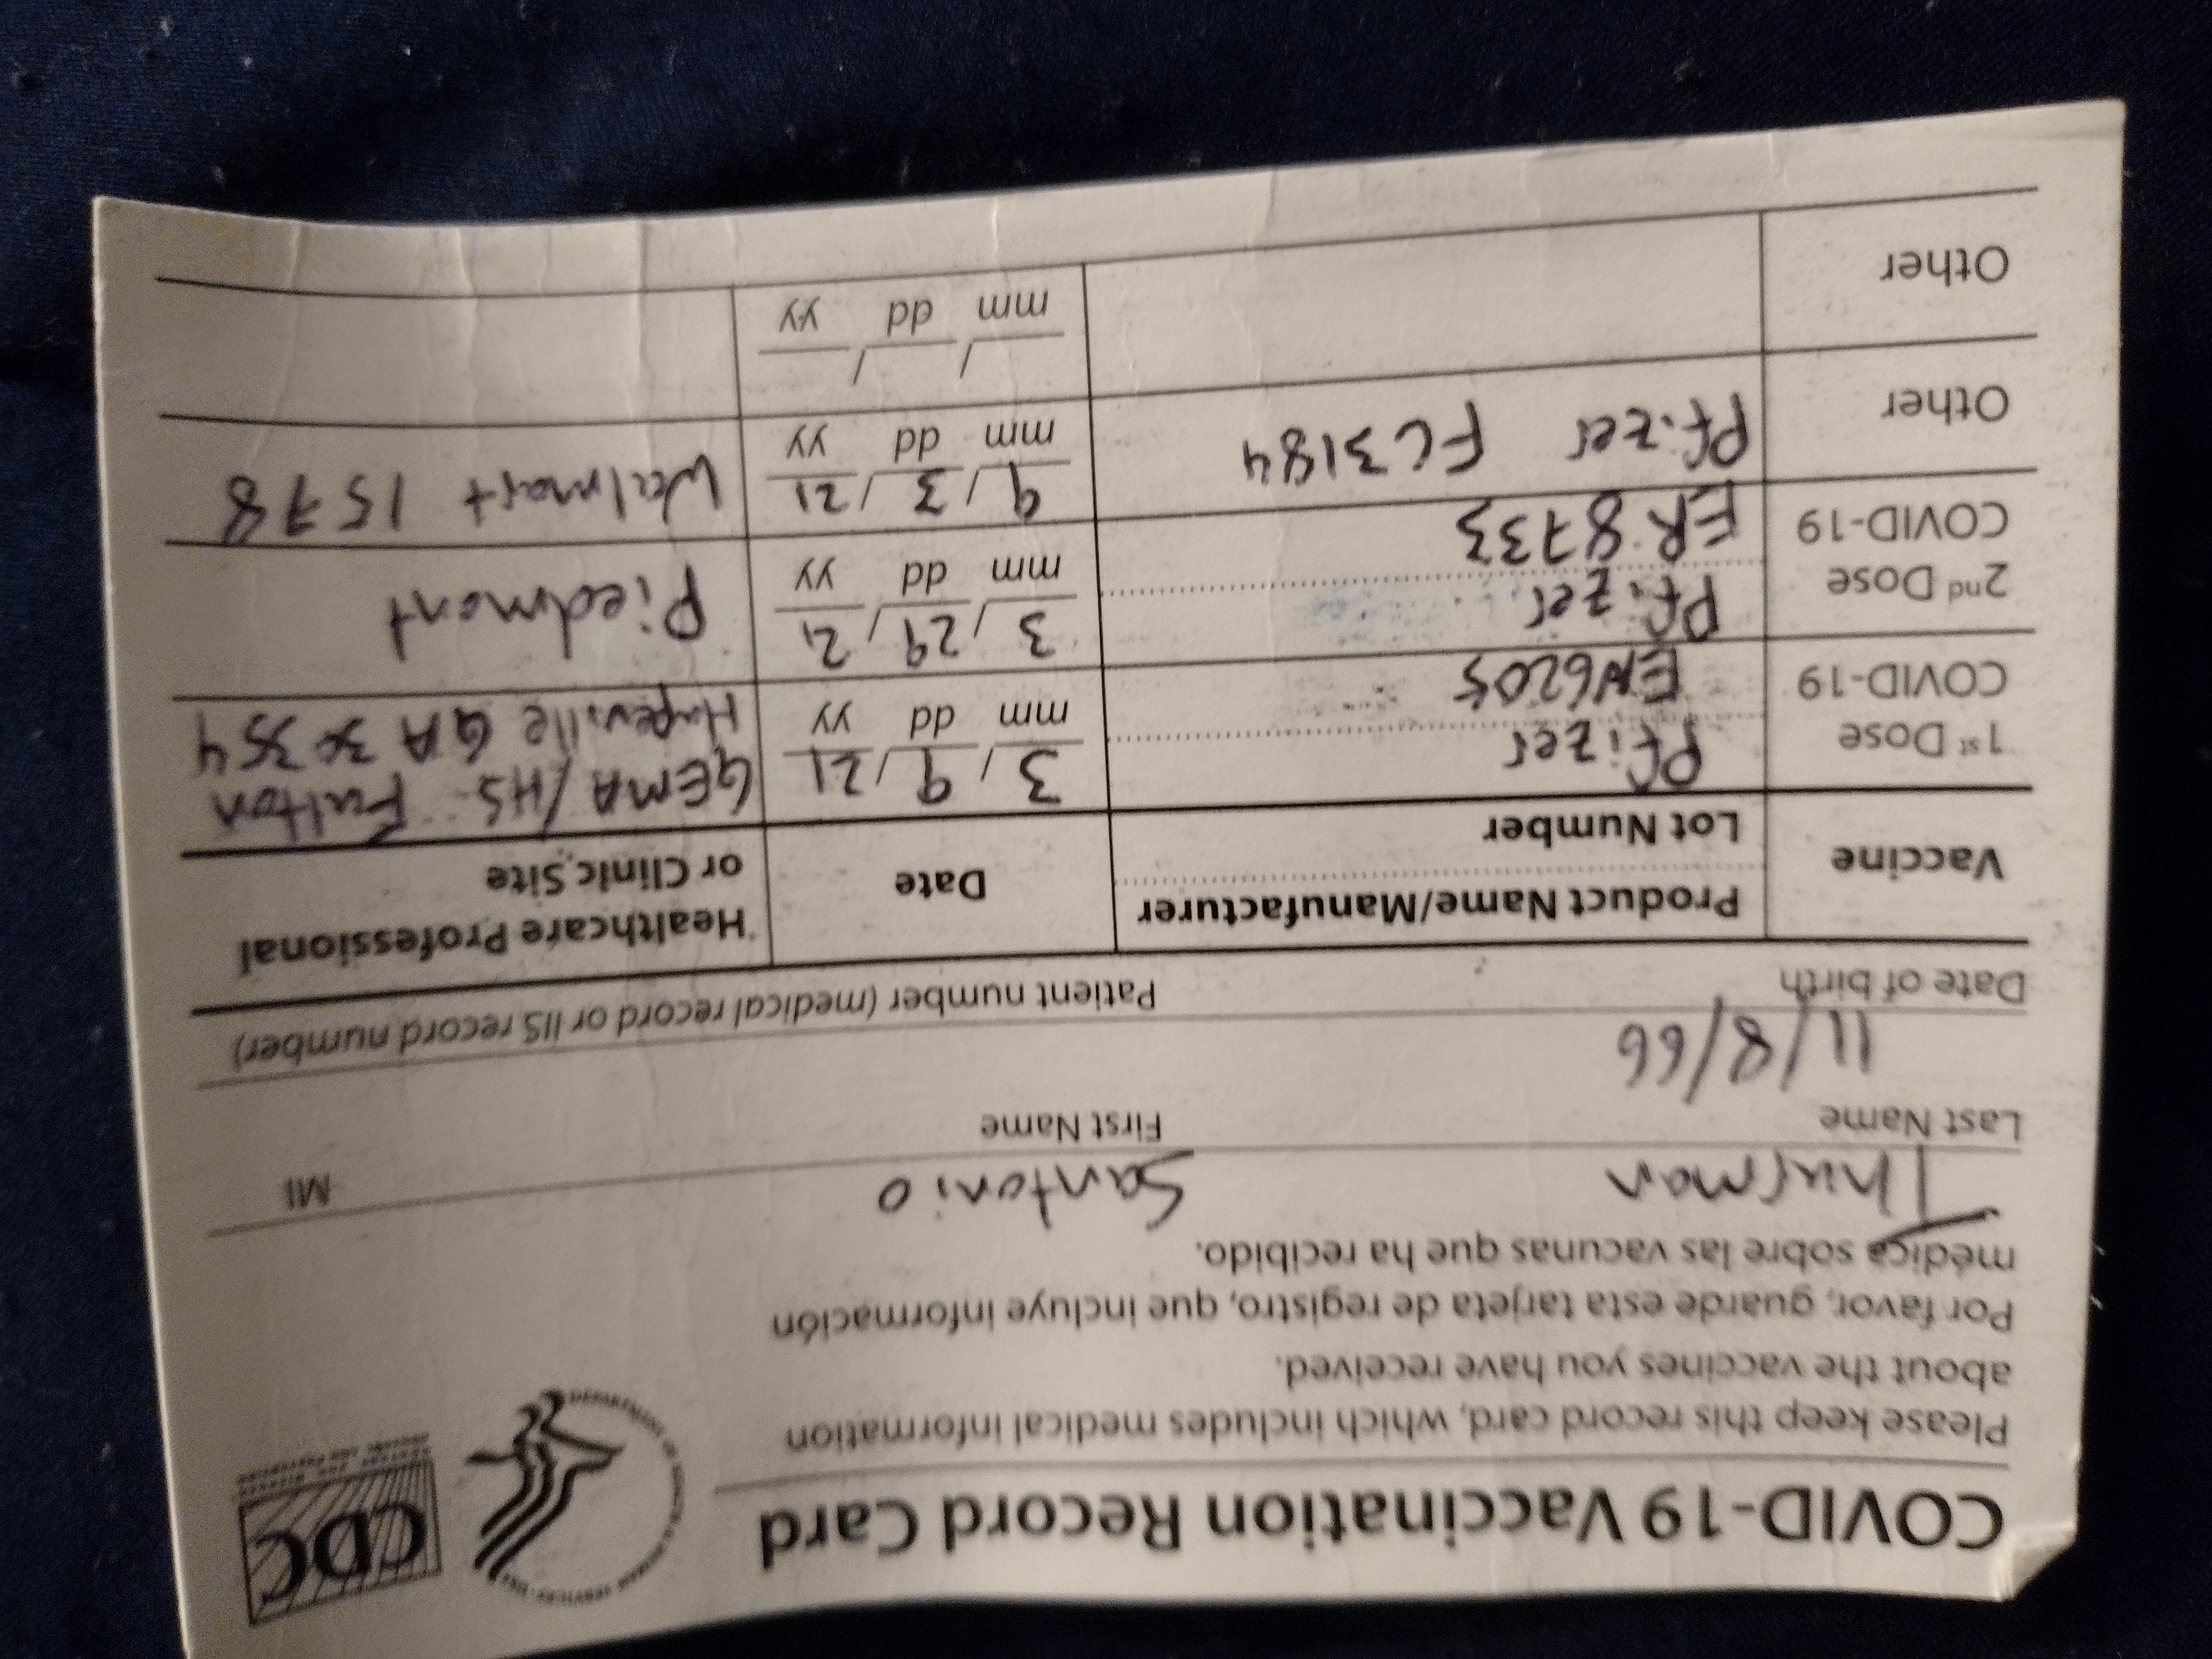 COVID-19 Vaccination Record Card
CDC
Please keep this record card, which includes medical information
about the vaccines you have received.
Por favor, guarde esta tarjeta de registro, que incluye información
médica sobre las vacunas que ha recibido.
Thurman Santonio
Last Name First Name MI
11/8/66
Date of birth Patient number (medical record or IIS record number)
Vaccine Product Name/Manufacturer Date Healthcare Professional
Lot Number or Clinic Site
1st Dose Pfizer 3/9/21 GEMA/HS Fulton
COVID-19 EN6205 mm dd yy Hapeville GA 30354
2nd Dose Pfizer 3/29/21 Piedmont
COVID-19 ER8733 mm dd yy
Other Pfizer FC3184 9/3/21 Walmart 1578
mm dd yy
Other / /
mm dd yy